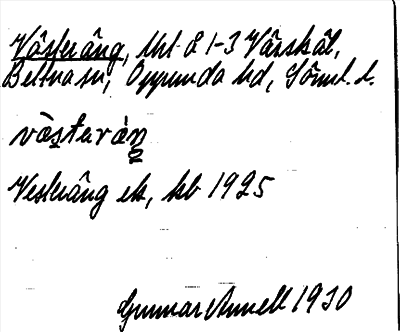 Västeräng, Utl. å 1-3 Vårskäl,
Bettna sn, Oppunda hd, Söml. l.
västeräŋ
Vesteräng ek, kb 1925
Gunnar Annell 1930